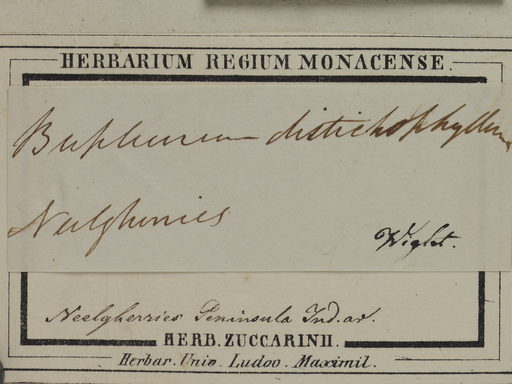 HERBARIUM REGIUM MONACENSE.
Bupleurum distichophyllum
Neelgherries
Wight.
Neelgherries Peninsula Ind. or.
HERB. ZUCCARINII.
Herbar. Univ. Ludov. Maximil.